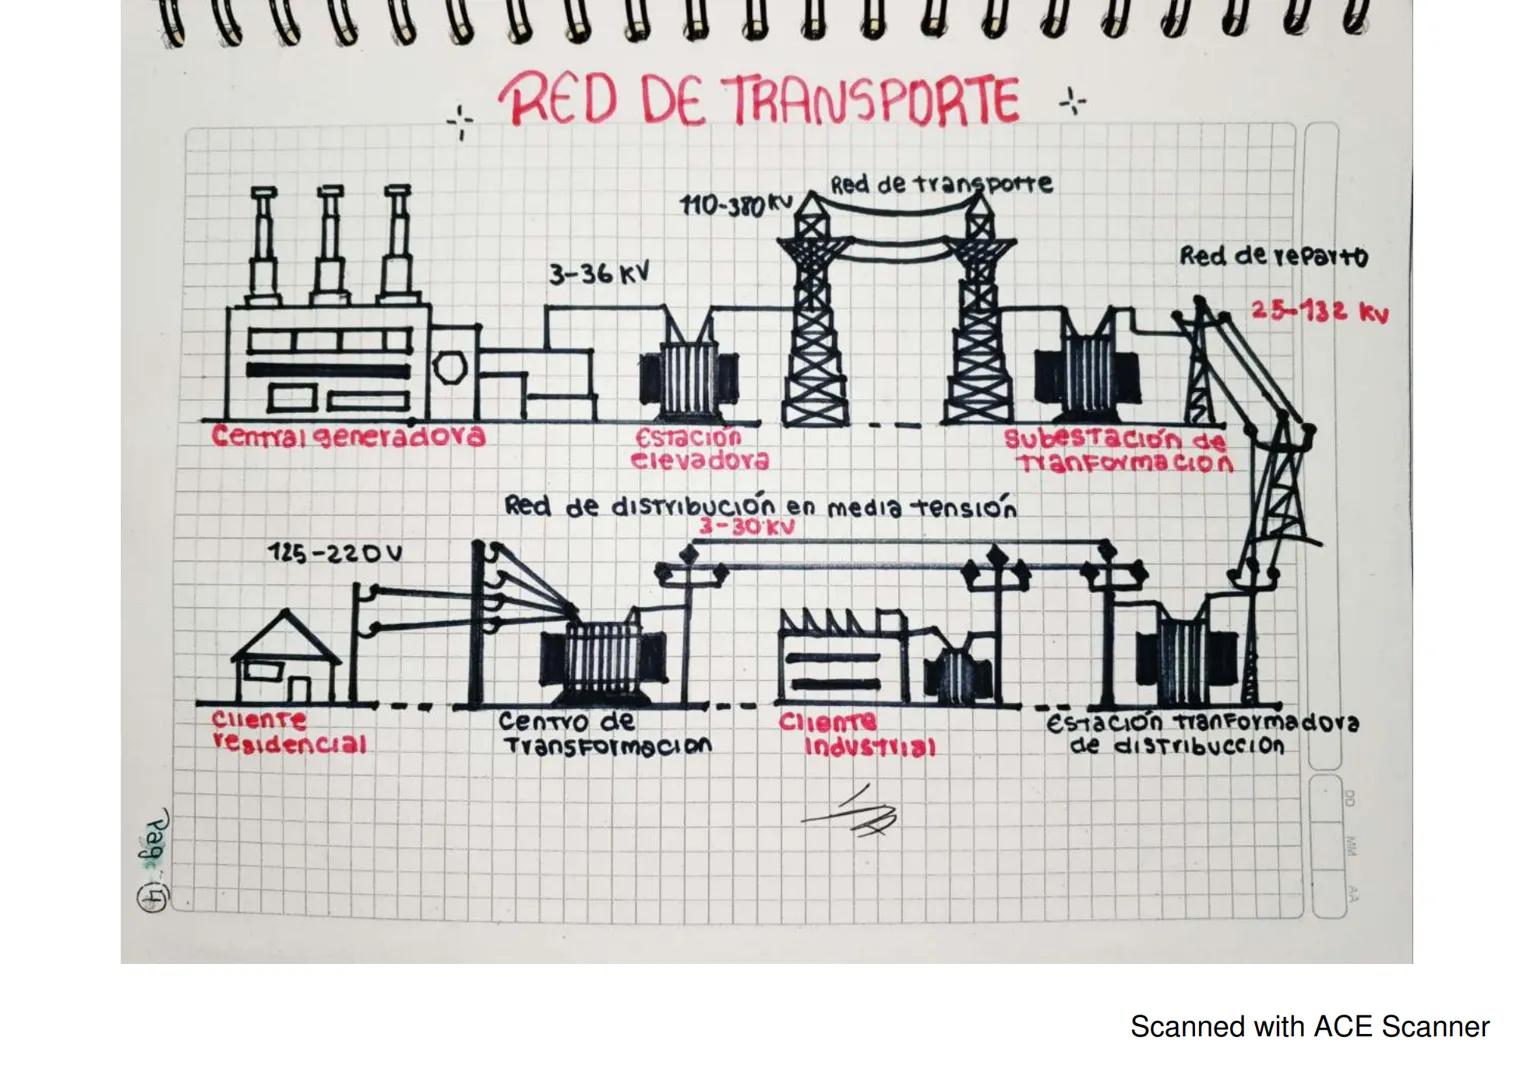 RED DE TRANSPORTE
Red de transporte
110-380 KV
Red de reparto
3-36 KV
25-132 KV
Central generadora
Estación
elevadora
Subestación de
Tranformación
Red de distribución en media tensión
3-30 KV
125-220V
Cliente
residencial
Centro de
Transformacion
Cliente
industrial
Estación tranformadora
de distribuccion
Pag: 14
DD MM AA
Scanned with ACE Scanner